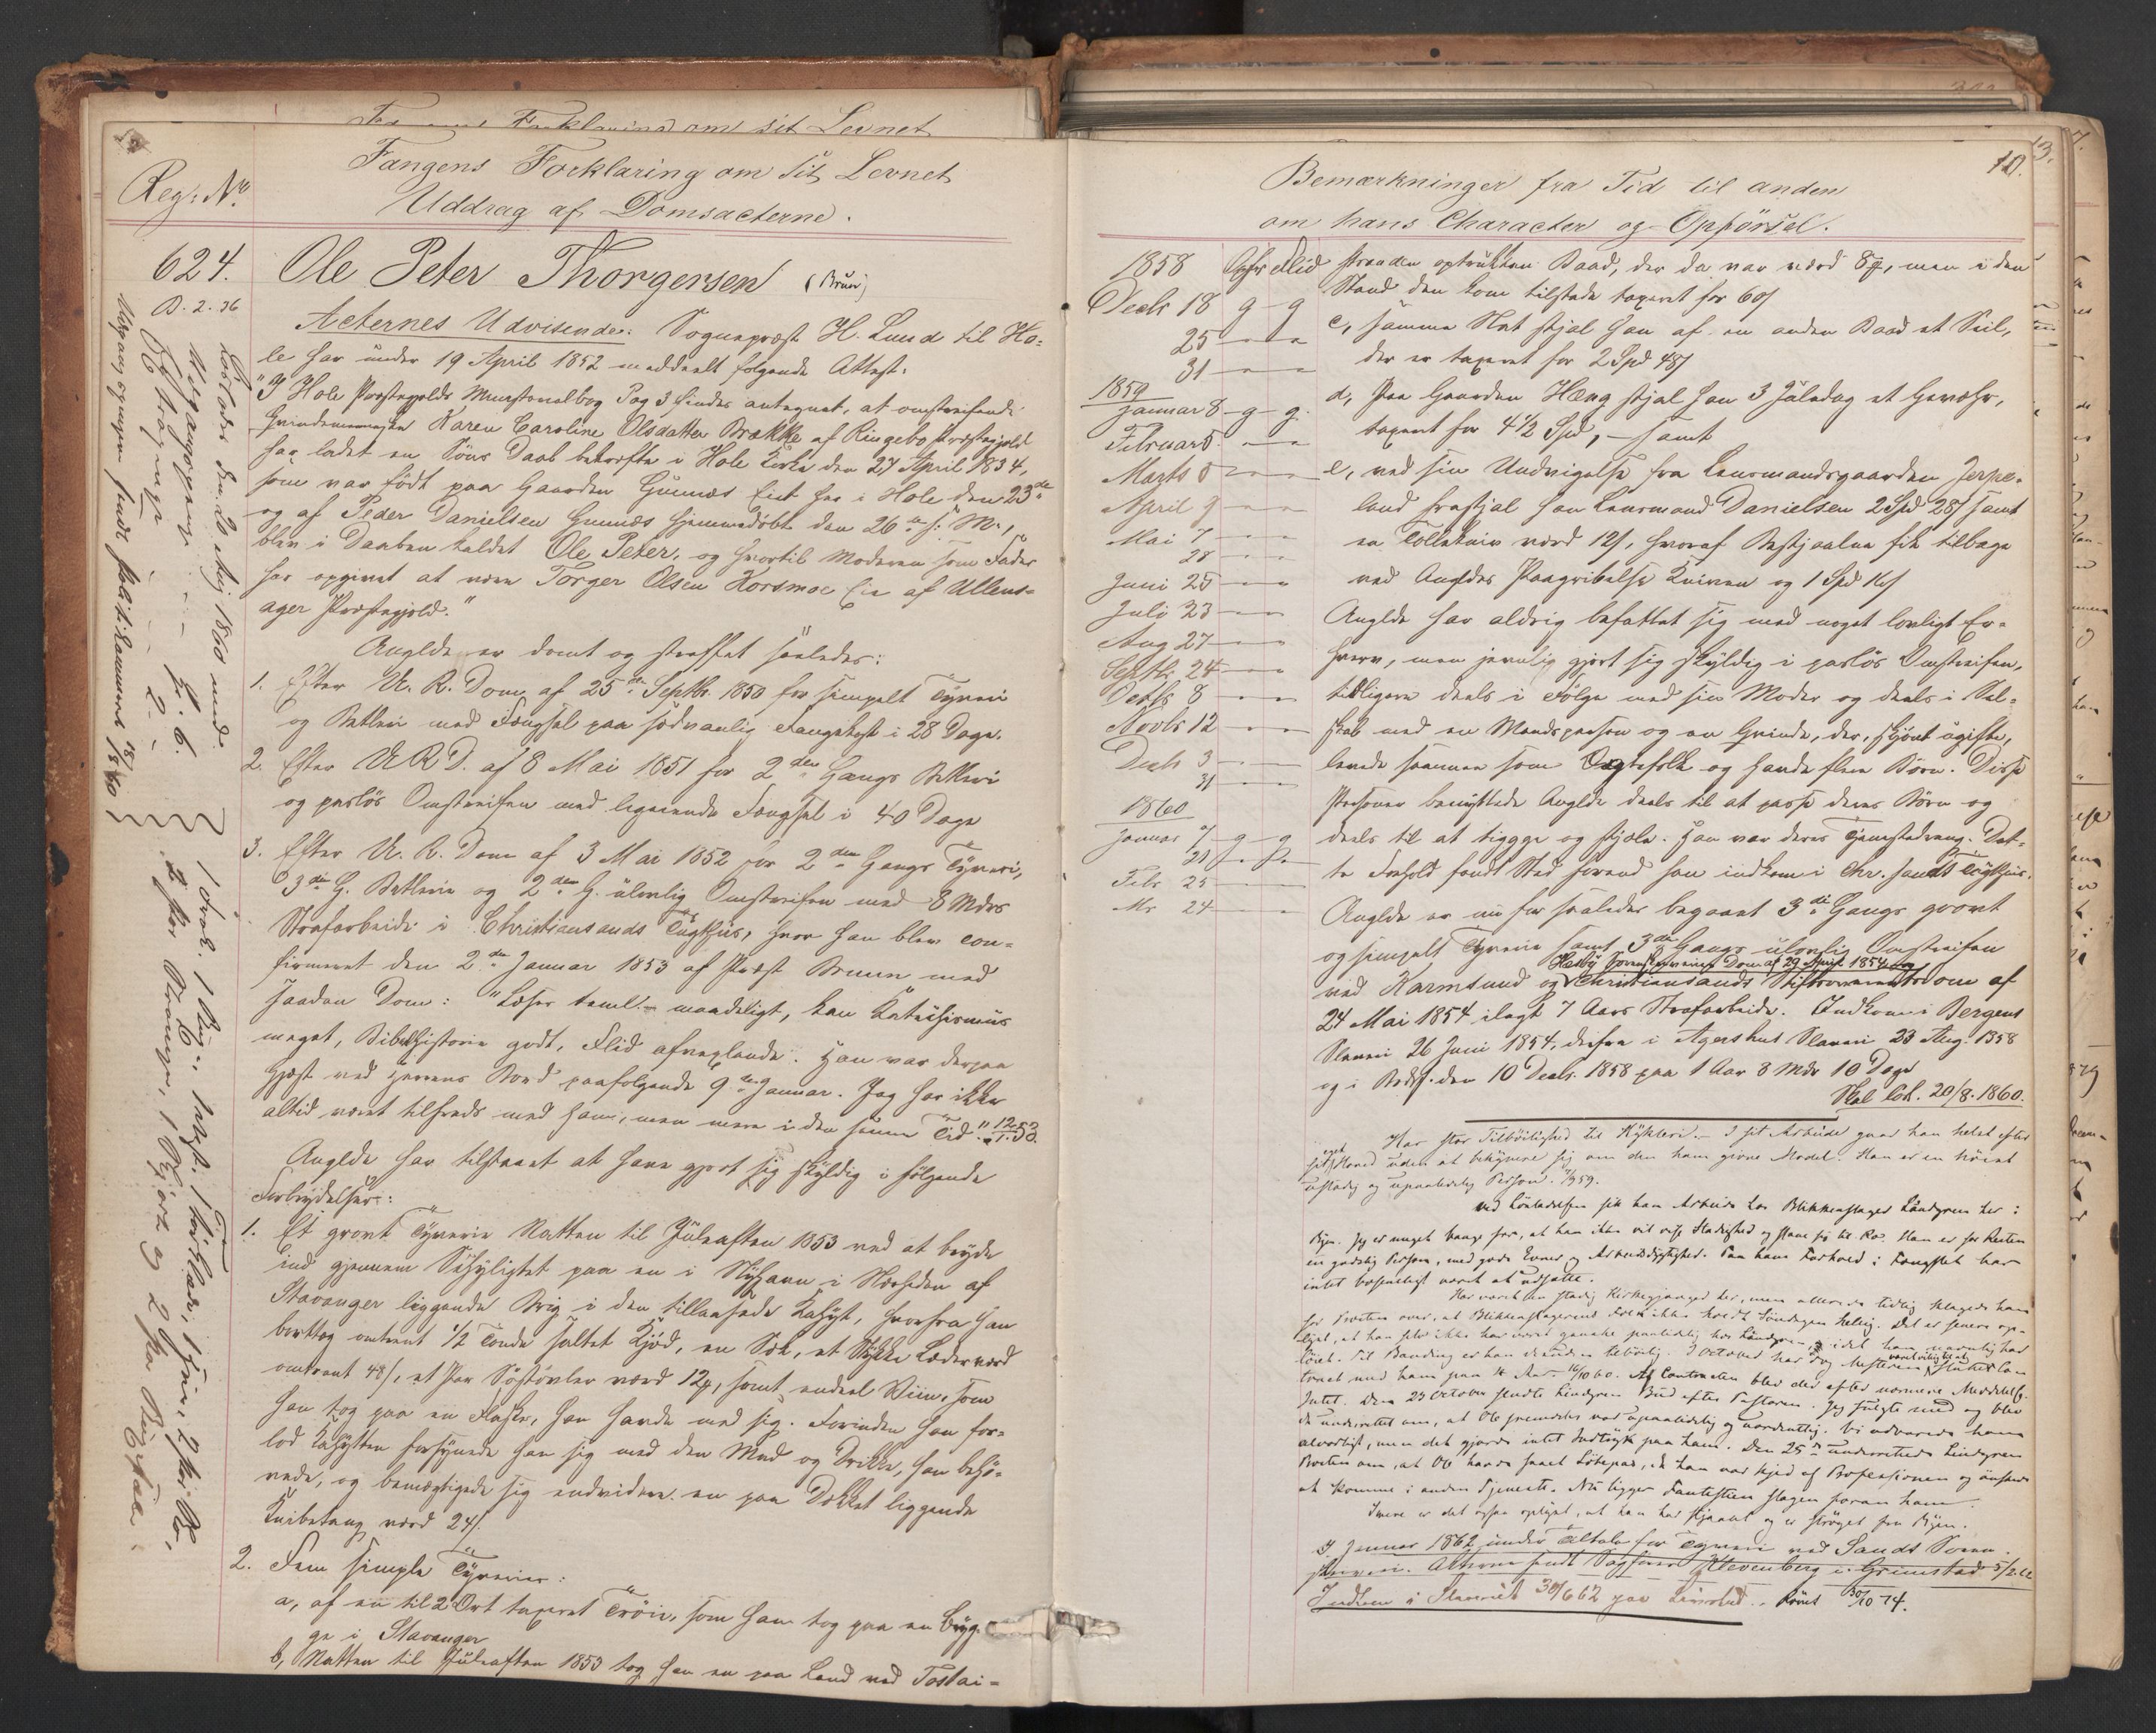 Fangens Forklaring om sit Levnet
Uddrag af Domsacterne.
Reg: No.
624.
B. 2. 36
Ole Peter Thorgersen (Bruun)
Acternes Udvisende: Sognepræst H. Lund til Ho-
le har under 19 April 1852 meddeelt følgende Attest:
"I Hole Præstegjelds Ministerialbog Pag 3 findes antegnet, at omstreifende
Karen Caroline Olsdatter Brække af Ringebo Præstegjeld
har ladet en Søns Daab bekræfte i Hole Kirke den 27 April 1834,
som var født paa Gaarden Gunnæs her i Hole den 23de
og af Peder Danielsen Gunnæs hjemmedøbt den 26de s. M.,
blev i Daaben kaldet Ole Peter, og hvortil Moderen som Fader
har opgivet at være Torger Olsen Korsmoe Eie af Ullens-
ager Præstegjeld."
Anglde er dømt og straffet saaledes:
1. Efter U. R. Dom af 25de Septbr. 1850 for simpelt Tyveri
og Betleri med Fængsel paa sædvanlig Fangekost i 28 Dage.
2. Efter U R D. af 8 Mai 1851 for 2den Gangs Betleri
og pasløs Omstreifen med ligeiende Fængsel i 40 Dage
3. Efter U. R. Dom af 3 Mai 1852 for 2den Gangs Tyveri,
3die G. Betlerie og 2den G. ulovlig Omstreifen med 8 Mdrs
Strafarbeide i Christiansands Tugthus, hvor han blev con-
firmeret den 2den Januar 1853 af Præst Bruun med
saadan Dom: "Læser teml. maadeligt, kan Katechismus
maget, Bibelhistorie godt, Flid afvexlende. Han var derpaa
Gjæst ved Herrens Bord paafølgende 9de Januar. Jeg har ikke
altid været tilfreds med ham, men mere i den senere Tid".
Anglde har tilstaaet at have gjort sig skyldig i følgende
Forbrydelser:
1. Et grovt Tyverie Natten til Juleaften 1853 ved at bryde
ind gjennem Skylightet paa en i Nyhavn i Nærheden af
Stavanger liggende Brig i den tillaasede Kahyt, hvorfra han
borttog omtrent 1/2 Tønde saltet Kjød, en Sæk, et Stykke Læder værd
omtrent 48 s, et Par Søstøvler værd 12 , samt endeel Viin, som
han tog paa en Flaske, han havde med sig. Forinden han for-
lod Kahytten forsynede han sig med den Mad og Drikke, han behø-
vede, og bemægtigede sig endvidere en paa Dækket liggende
Knibetang værd 24 s.
2. Fem simple Tyverier:
a, af en til 2 Ort taxeret Trøie, som han tog paa en Bryg-
ge i Stavanger
b, Natten til Juleaften 1853 tog han en paa Land ved Tostai-
Løslades den 20 Aug 1860 med
10.
Bemærkninger fra Tid til anden
om hans Character og Opførsel.
1858 Opfør Flid
Decbr 18 g g
25
31
1859
Januar 8 g g.
Februar 5
Marts 5
April 9
Mai 7
28
Juni 25
July 23
Aug 27
Septbr. 24
Octbr 8
Novbr 12
Decbr 3
31
1860
Januar 7 g g
21
Febr 25
Mr 24
stranden optrukken Baad, der da var værd 8 , men i den
Stand den kom tilstede taxeret for 60 s
c, samme Nat stjal han af en anden Baad et Seil,
der er taxeret for 2 Spd 48 s
d, Paa Gaarden Hæng stjal han 3 Juledag et Gevæhr,
taxeret for 4 1/2 Spd, samt
e, ved sin Undvigelse fra Lensmandsgaarden Jerpe-
land frastjal han Lensmand Danielsen 2 Spd 28 s samt
en Tollekniv værd 12 s, hvoraf Bestjaalne fik tilbage
ved Angldes Paagribelse Kniven og 1 Spd 16 s
Anglde har aldrig befattet sig med noget lovligt Er-
hverv, men jevnlig gjort sig skyldig i pasløs Omstreifen,
tidligere deels i Følge med sin Moder og deels i Sel-
skab med en Mandsperson og en Qvinde, der, skjønt ugifte,
levede sammen som Ægtefolk og havde flere Børn. Disse
Personer benyttede Anglde deels til at passe deres Børn og
deels til at tigge og stjæle. Han var deres Tjenestedreng. Det-
te Forhold fandt Sted forend han indkom i Chr.sands Tugthuus.
Anglde er nu for saaledes begaaet 3die Gangs grovt
og simpelt Tyverie samt 3die Gangs ulovlig Omstreifen
ved Karmsund og Hesby Sorenskriveries Dom af 29 April 1854 og Christiansands Stiftsoverretsdom af
24 Mai 1854 ilagt 7 Aars Strafarbeide. Indkom i Bergens
Slaveri 26 Juni 1854, derfra i Agershus Slaveri 23 Aug. 1858
og i Bodsf. den 10 Decbr. 1858 paa 1 Aar 8 Mdr 10 Dage
Skal løsl. 20/8. 1860.
Har stor Tilbøilighed til Hykleri. I sit Arbeide gaar han helst efter
sit eget Hoved uden at bekymre sig om den ham givne Model. Han er en høist
ustadig og upaalidelig Person.
Ved Løsladelsen fik han Arbeide hos Blikkenslager Lindgren her i
Byen. Jeg er meget bange for, at han ikke vil vise Stadighed og slaae sig til Ro. Han er for Resten
en godslig Person, med gode Evner og Arbeidsdygtighed. Paa hans Forhold i Fængslet har
intet væsentligt været at udsætte.
Har været en stadig Kirkegjænger her, men allerede tidlig klagede han
for Præsten over, at Blikkenslagerens Folk ikke holdt Søndagen hellig. Det er senere op-
lyst, at han selv ikke har været ganske paalidelig hos Lindgren, idet han navnlig har
løiet. Til Banding er han desuden tilbøielig. I October har dog Mesteren sluttet Con-
tract med ham paa 4 Aar 16/10 60. Af Contracten blev der efter nærmere Meddelels.
Intet. Den 23 October sendte Lindgren Bud efter Pastoren. Jeg fulgte med og blev
da underrettet om, at Ole fremdeles var upaalidelig og uordentlig. Vi advarede ham
alvorligt, men det gjorde intet Indtryk paa ham. Den 25de underrettede Lindgren
Præsten om, at Ole havde faaet Løbepas, da han var kjed af Professionen og ønskede
at komme i anden Tjeneste. Nu ligger Fantestien slagen foran ham.
Senere er det ogsaa oplyst, at han har stjaalet og er strøget fra Byen.
I Januar 1862 under Tiltale for Tyveri ved Sands Soren-
skriveri. Acterne sendt Sagfører Klevenberg i Grimstad 5/2 62
Indkom i Slaveriet 30/6 62 paa Livstid. Rømt 30/10 74.